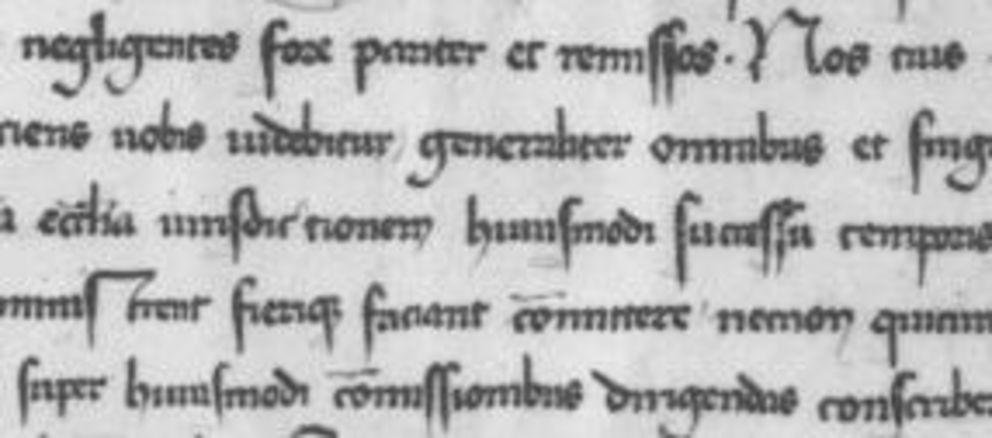 negligentes fore pariter et remissos. Nos eius
riens nobis uidebitur generaliter omnibus et sing
a eccl̄ia iurisdictionem huiusmodi successu temporis
minis trent fieriq; faciant cōmittere necnon quicum
super huiusmodi cōmissionibus dirigendas conscribe